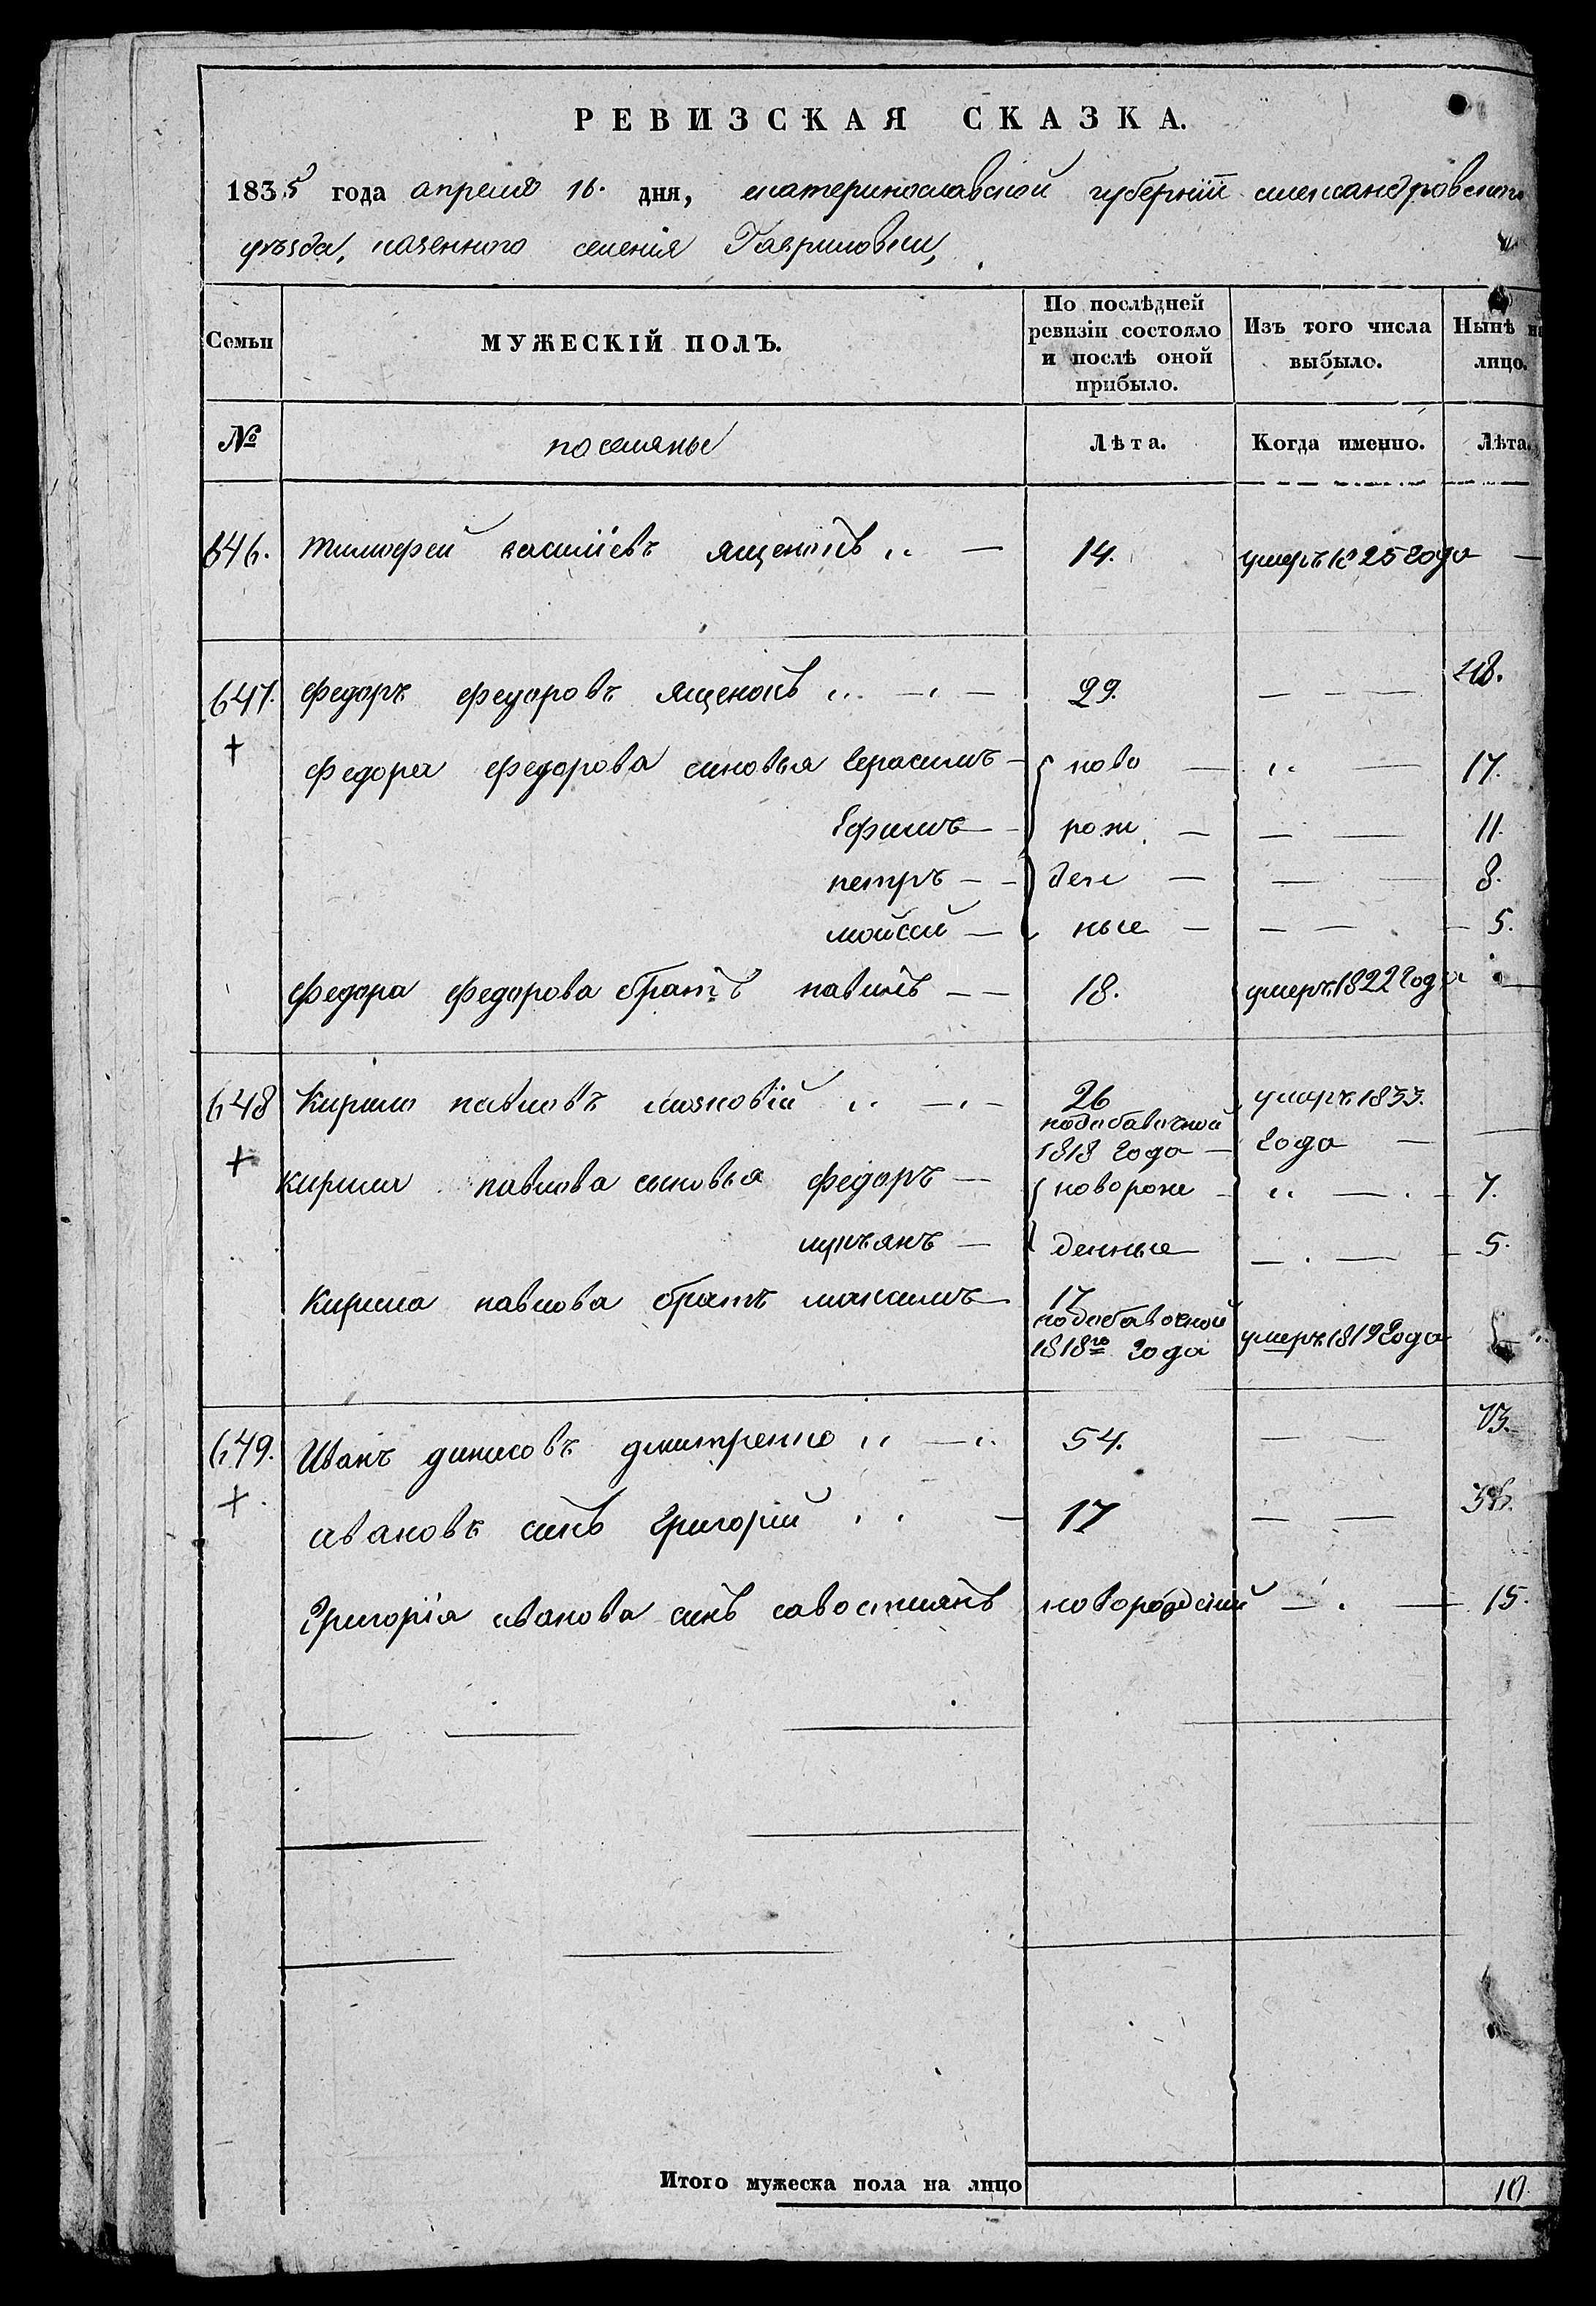 РЕВИЗСКАЯ СКАЗКА.
1835 года апреля 16. дня, екатеринославской губернiи александровского
уезда, казенного селенiя Гавриловки,
Семьи
МУЖЕСКIЙ ПОЛЪ.
По послѣдней ревизiи состояло и послѣ оной прибыло.
Изъ того числа выбыло.
Нынѣ на лицо.
№
поселяне
Лѣта.
Когда именно.
Лѣта.
646. тимофей василiевъ ященокъ 14. умеръ 1825 года
647. федоръ федоровъ ященокъ 29. 48.
федора федорова синовья герасимъ ново 17.
Ефимъ рож 11.
петръ ден 8.
мойсей ные 5.
федора федорова братъ павилъ 18. умеръ 1822 года
648 Кирило павловъ 26 умеръ 1833.
подобавочной
1818 года года
кирила павлова синовья федоръ новорож 7.
лукъянъ денные 5.
Кирила павлова братъ максимъ 17
подобавочной
1818го года умеръ 1819 года
649. Иванъ динисовъ дмитренко 54. 73.
ивановъ синъ григорiй 17 36.
Григорiя иванова синъ савостиянъ 15.
Итого мужеска пола на лицо 10